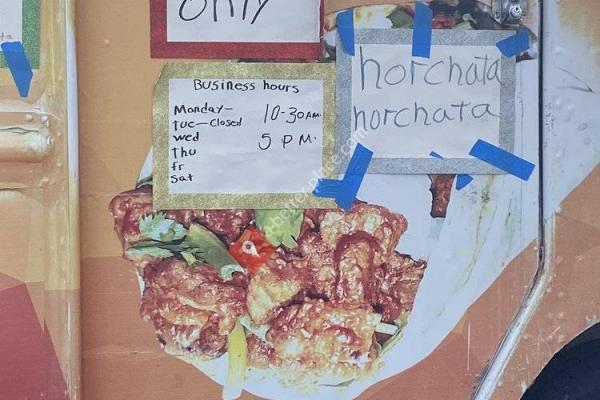 only
Business hours
Monday– 10-30AM.
Tue–Closed
wed 5 PM.
Thu
fr
Sat
horchata
horchata